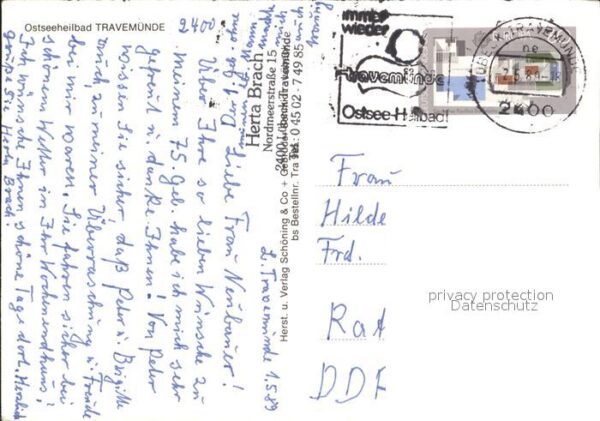 Ostseeheilbad TRAVEMÜNDE
2400
L. Travemünde 1.5.89
Liebe Frau Neubauer!
Über Ihre so lieben Wünsche zu
meinem 75. Geb. habe ich mich sehr
gefreut u. danke Ihnen! Von Peter
wissen Sie sicher daß Peter u. Brigitte
auch zu meiner Überraschung u. Freude
bei mir waren. Sie fahren sicher bei
schönem Wetter in Ihr Wochenendhaus!
Ich wünsche Ihnen schöne Tage dort. Herzlich
grüßt Sie Herta Brach!
Herta Brach
Nordmeerstraße 15
2400 Lübeck-Travemünde
Tel. 0 45 02 - 7 49 85
Herst. u. Verlag Schöning & Co + Gebrüder Schmidt
bs Bestellnr. Tra
immer
wieder
Travemünde
Ostsee-Heilbad
LÜBECK-TRAVEMÜNDE
ne
2400
Frau
Hilde
Frd.
Rat
DDR
privacy protection
Datenschutz